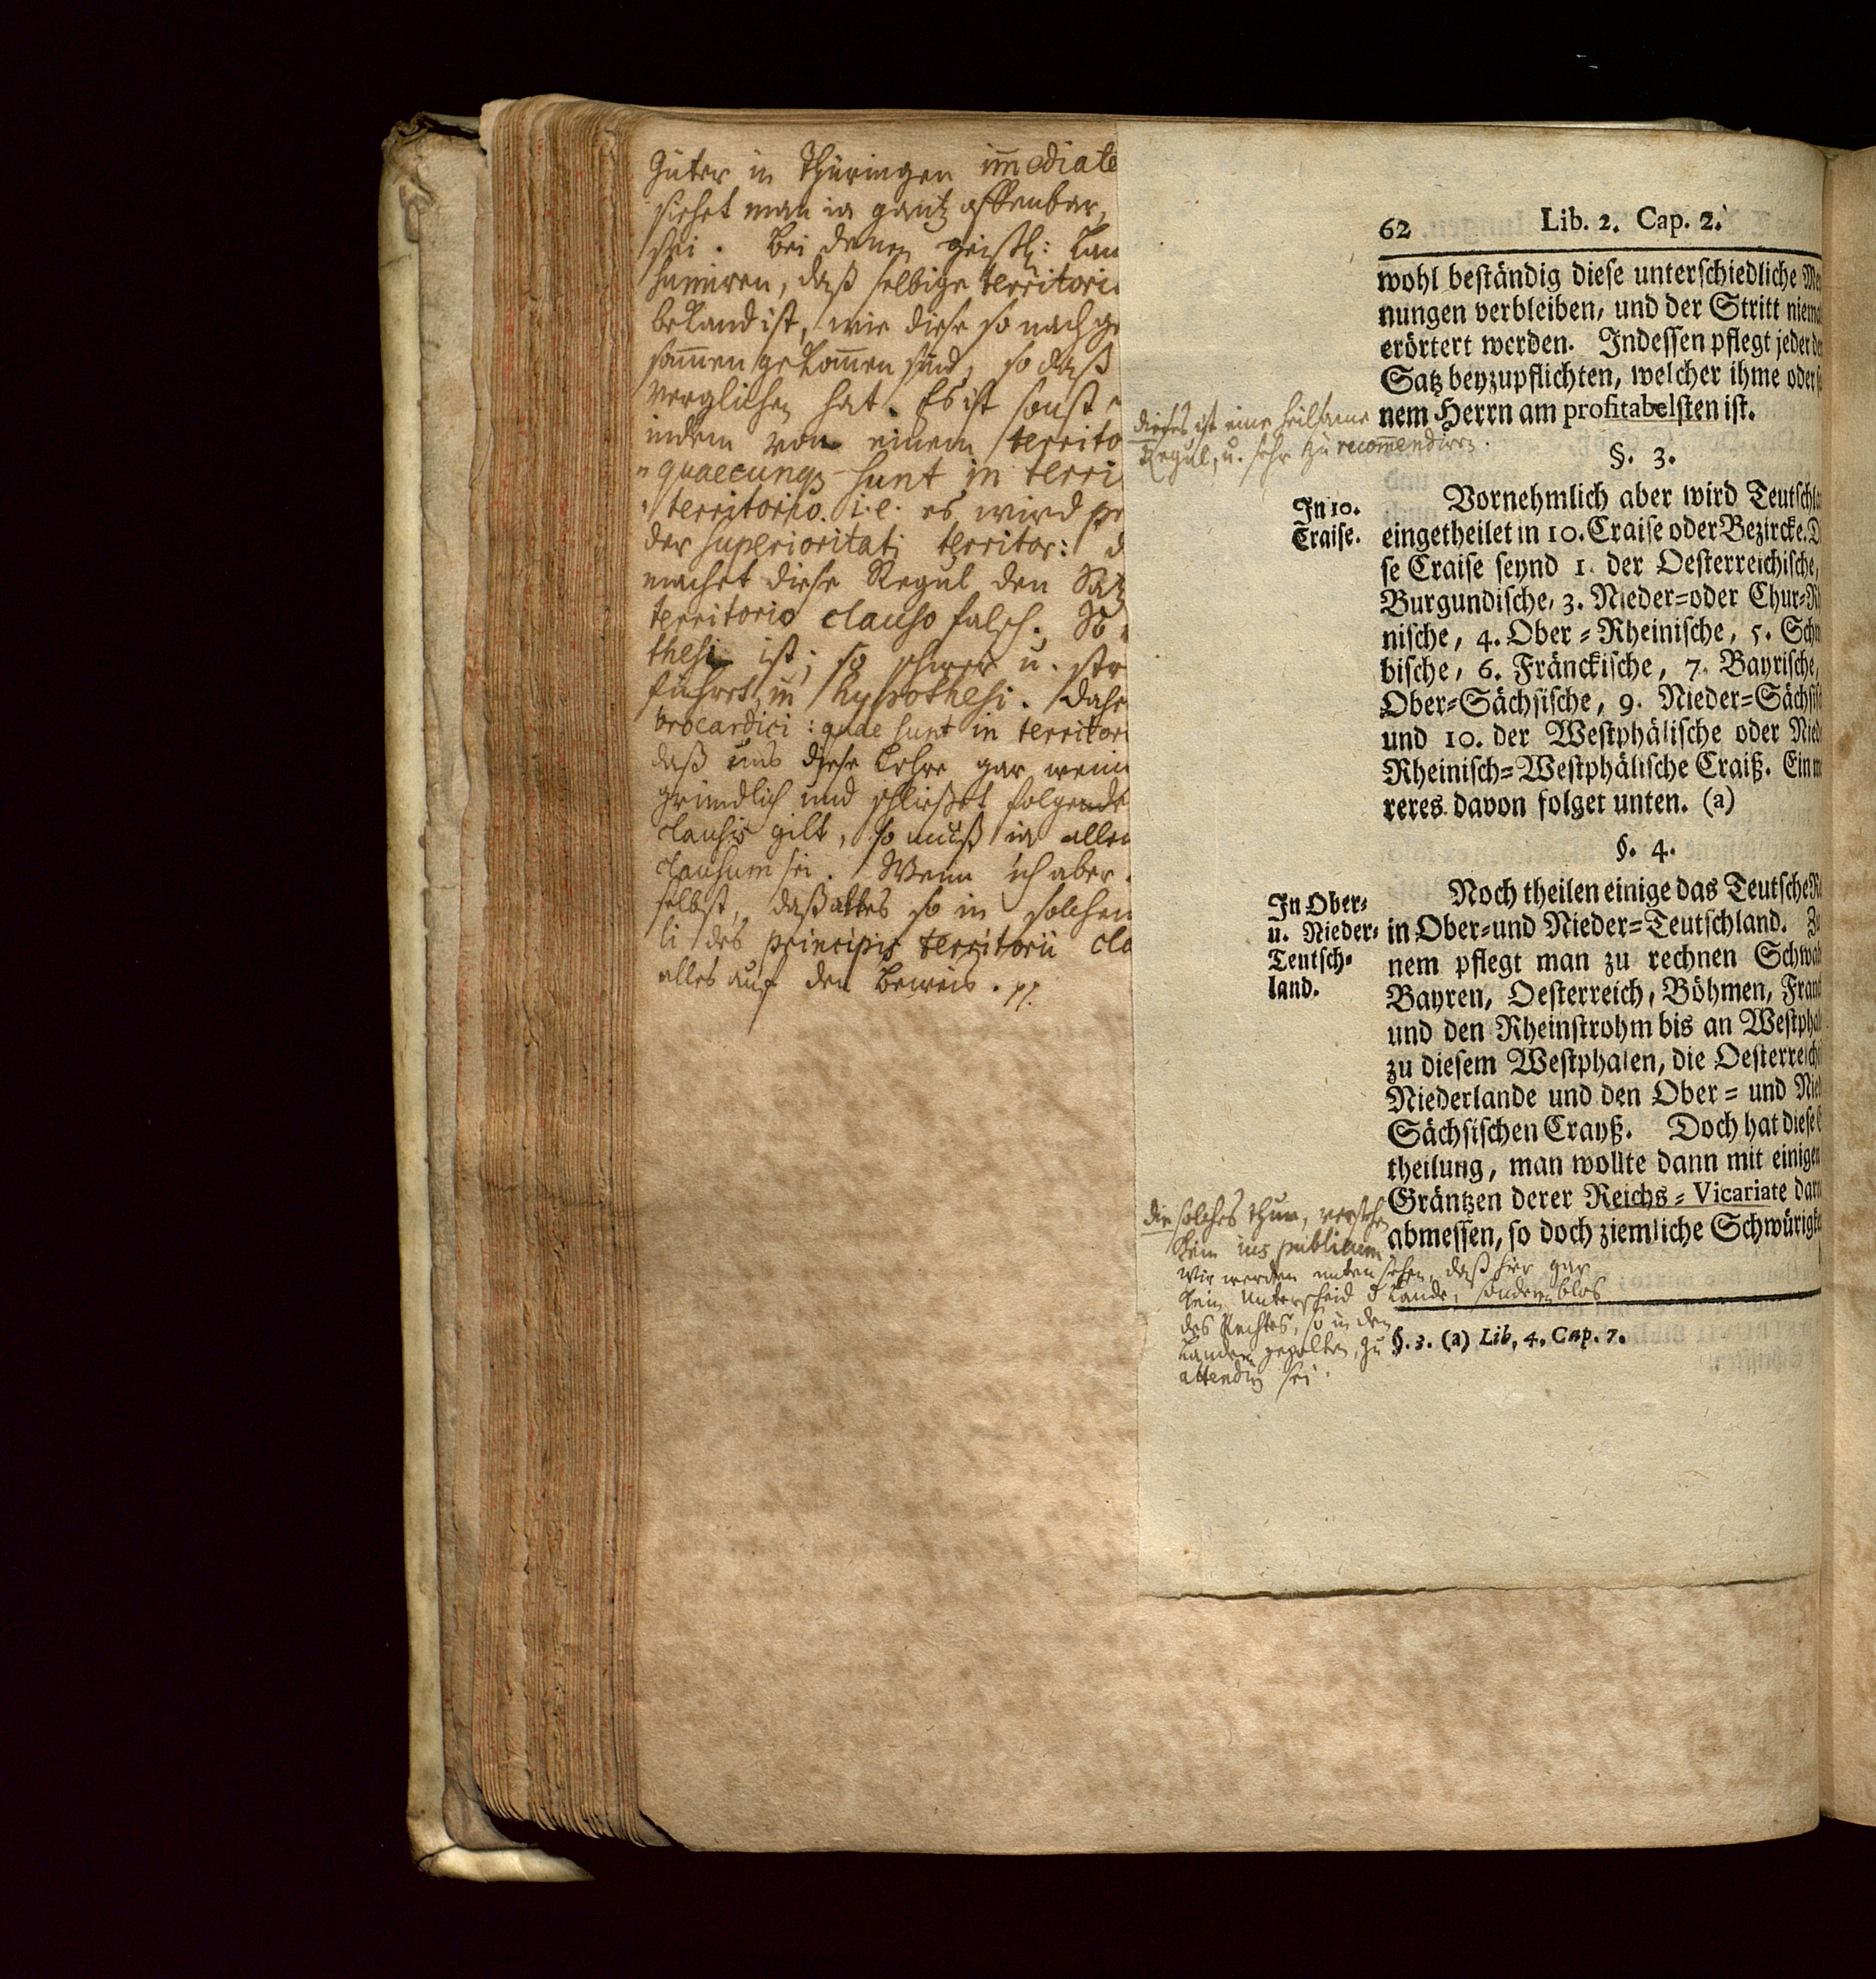 Güter in Thüringen immediate
siehet man ia gantz offenbar,
sei. Bei denen geistl: Lan
sumiren, daß selbige territori
bekand ist, wie diese so nach ge
sammen gekommen sind, so daß
verglichen hat. Es ist sonst
indem von einem territo
quaecunque sunt in terri
territorio. i. e. es wird pr
der superioritati territor: d
machet diese Regul den Satz
territorio clauso falsch. So
thesi ist; so schwer u.
führet, in hypothesi. Dahe
brocardici: quae sunt in territori
daß uns diese Lehre gar weni
gründlich und schließet folgende
clausis gilt, so muß in allen
clausum sei. Wenn ich aber
selbst, daß alles so in solchen
li des principis territorii cla
alles auf den Beweis. pp.
62 Lib. 2. Cap. 2.
wohl beständig diese unterschiedliche Me
nungen verbleiben, und der Stritt niema
erörtert werden. Indessen pflegt jeder de
Satz beyzupflichten, welcher ihme oder s
nem Herrn am profitabelsten ist.
dieses ist eine heilsame
Regul, u. sehr zu recommendiren.
§. 3.
In 10.
Craise.
Vornehmlich aber wird Teutschla
eingetheilet in 10. Craise oder Bezircke. D
se Craise seynd 1. der Oesterreichische,
Burgundische, 3. Nieder-oder Chur-Rh
nische, 4. Ober-Rheinische, 5. Schw
bische, 6. Fränckische, 7. Bayrische,
Ober-Sächsische, 9. Nieder-Sächsis
und 10. der Westphälische oder Nied
Rheinisch-Westphälische Craiß. Ein m
reres davon folget unten. (a)
§. 4.
In Ober-
u. Nieder-
Teutsch-
land.
Noch theilen einige das Teutsche R
in Ober-und Nieder-Teutschland. Z
nem pflegt man zu rechnen Schwab
Bayren, Oesterreich, Böhmen, Franc
und den Rheinstrohm bis an Westpha
zu diesem Westphalen, die Oesterreichi
Niederlande und den Ober- und Nied
Sächsischen Crayß. Doch hat diese E
theilung, man wollte dann mit einigen
Gräntzen derer Reichs-Vicariate dar
abmessen, so doch ziemliche Schwürigk
die solches thun, verstehen
kein ius publicum
Wir werden unten sehen, daß hier gar
kein Unterscheid d Lande, sondern blos
des Rechtes, so in den
Landen gehalten, zu
attendiren sei.
§. 3. (a) Lib. 4. Cap. 7.